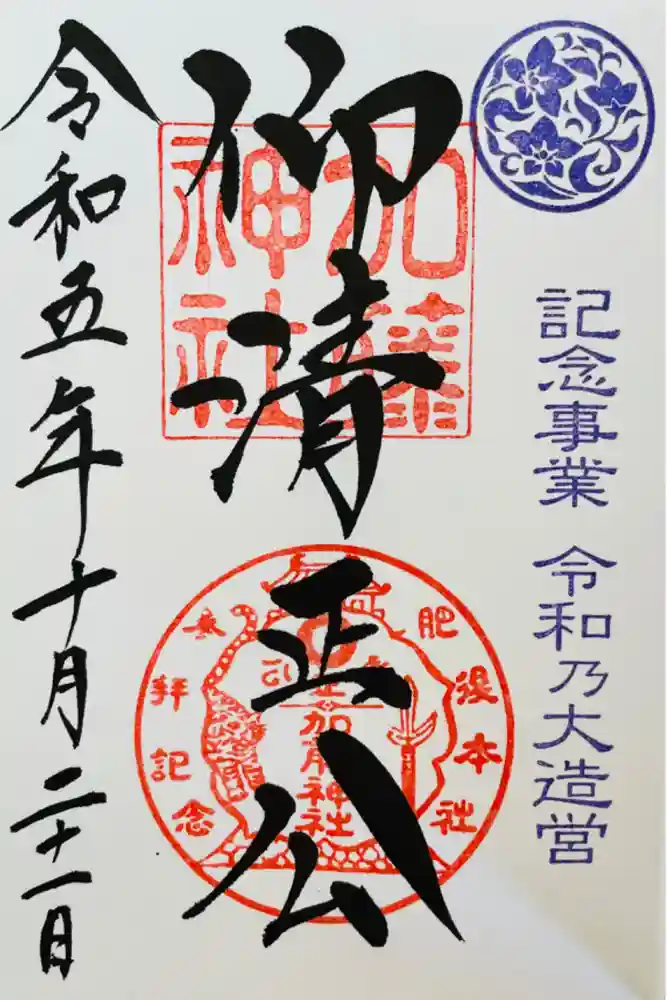 記念事業 令和乃大造営
仰清正公
加藤
神社
肥後本社
加藤神社
参拝記念
令和五年十月二十一日